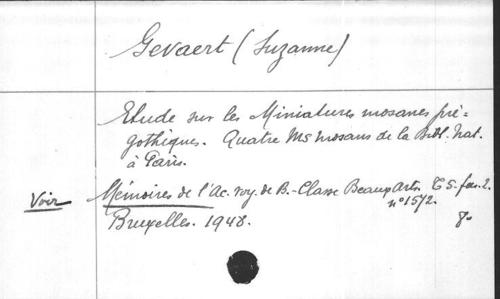 Gevaert (Suzanne)
Etude sur les Miniatures mosanes pré=
gothiques. Quatre Mss mosans de la Bibl. Nat.
à Paris.
Voir Mémoires de l'Ac. roy. de B.-Classe Beaux Arts. T 5. fas. 2.
n° 1572.
Bruxelles. 1948. 8°